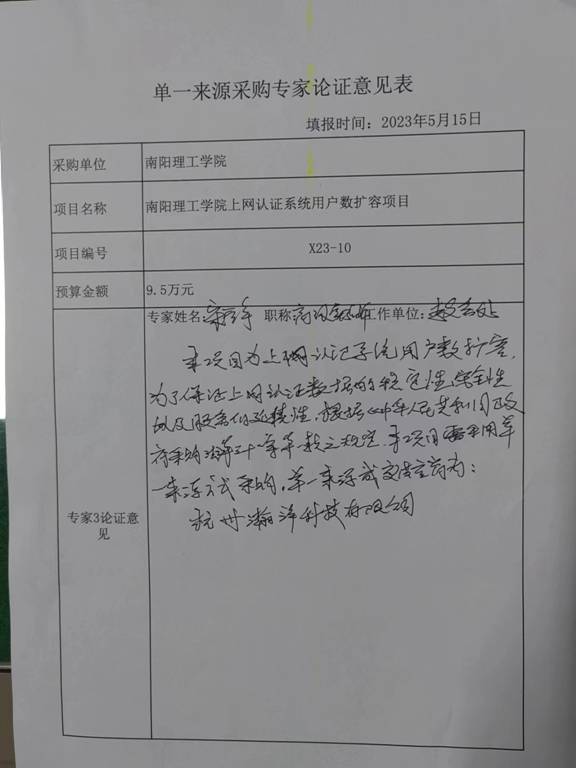 单一来源采购专家论证意见表
填报时间：2023年5月15日
采购单位 南阳理工学院
项目名称 南阳理工学院上网认证系统用户数扩容项目
项目编号 X23-10
预算金额 9.5万元
专家姓名: 职称: 工作单位:
本项目为上网认证系统用户数扩容,
为了保证上网认证数据的稳定性、安全性
以及服务的延续性,根据《中华人民共和国政
府采购法》第三十一条第 款之规定,本项目需采用单
一来源方式采购,单一来源成交供应商为:
杭州瀚洋科技有限公司
专家3论证意
见